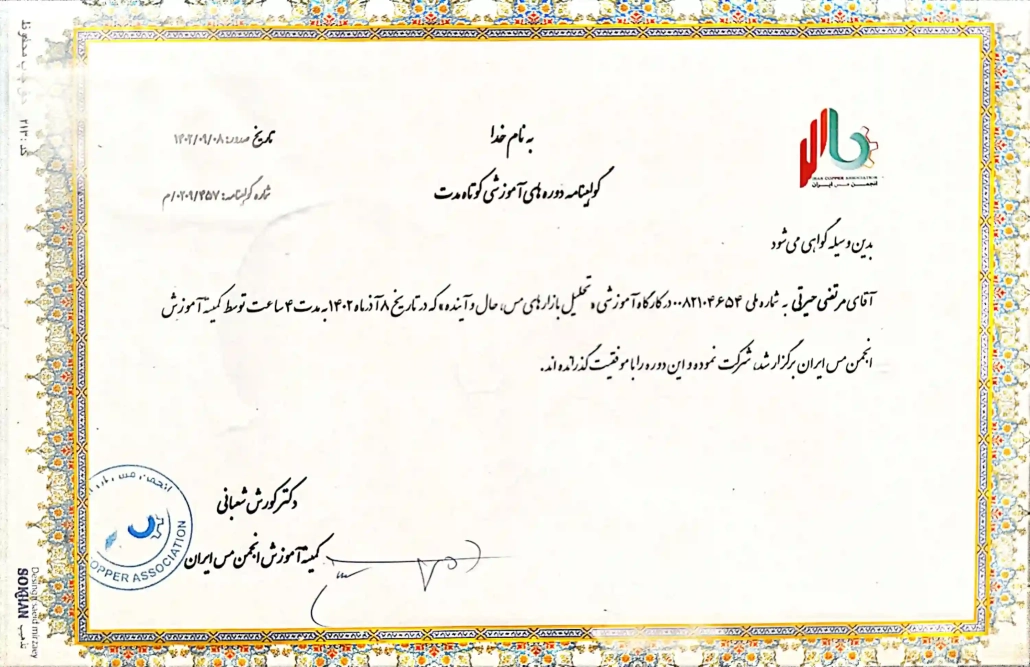 به نام خدا
گواهینامه دوره های آموزشی کوتاه مدت
تاریخ صدور: ۱۴۰۲/۰۹/۰۸
شماره گواهینامه: ۰۲۰۹/۴۵۷/م
IRAN COPPER ASSOCIATION
انجمن مس ایران
بدین وسیله گواهی می شود
آقای مرتضی حیرتی به شماره ملی ۰۰۸۲۱۰۴۶۵۴ در کارگاه آموزشی «تحلیل بازارهای مس، حال و آینده» که در تاریخ ۸ آذر ماه ۱۴۰۲ به مدت ۴ ساعت توسط کمیته آموزش
انجمن مس ایران برگزار شد، شرکت نموده و این دوره را با موفقیت گذرانده اند.
دکتر کورش شعبانی
کمیته آموزش انجمن مس ایران
انجمن مس
OPPER ASSOCIATION
چاپ محفوظ
کد: ۲۱۳
Desing: saeid mirzaey
SOKHAN
تذهیب